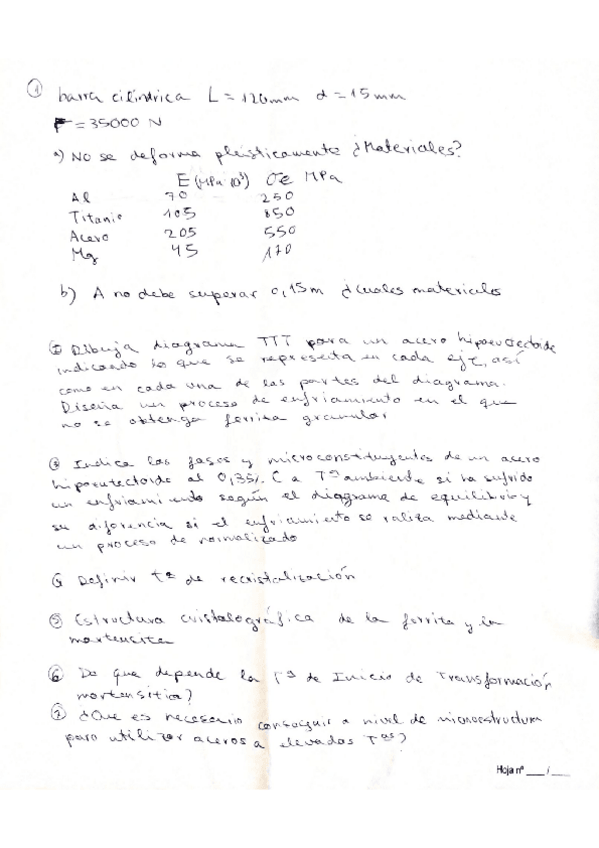 ① barra cilíndrica L = 120mm d = 15mm
F = 35000 N
a) No se deforma plásticamente ¿Materiales?
E (MPa 10³) σe MPa
Al 70 250
Titanio 105 850
Acero 205 550
Mg 45 170
b) A no debe superar 0,15m ¿cuales materiales
② Dibuja diagrama TTT para un acero hipoeutectoide
indicando lo que se representa en cada eje, así
como en cada una de las partes del diagrama.
Diseña un proceso de enfriamiento en el que
no se obtenga ferrita granular
③ Indica las fases y microconstituyentes de un acero
hipoeutectoide al 0,35% C a Tª ambiente si ha sufrido
un enfriamiento según el diagrama de equilibrio y
su diferencia si el enfriamiento se realiza mediante
un proceso de normalizado
Definir tª de recristalización
⑤ Estructura cristalográfica de la ferrita y la
martensita
⑥ De que depende la Tª de Inicio de Transformación
martensítica?
⑦ ¿Que es necesario conseguir a nivel de microestructura
para utilizar aceros a elevadas Tªs?
Hoja nº ___ / ___